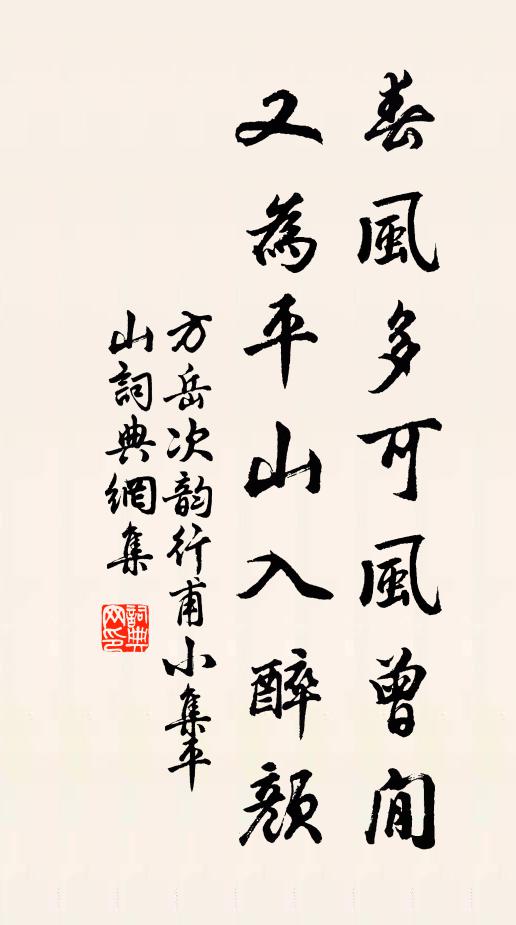 春風多可風曾閒
又為平山入醉顏
方岳次韵行甫小集平
山詞典網集
詞典網印